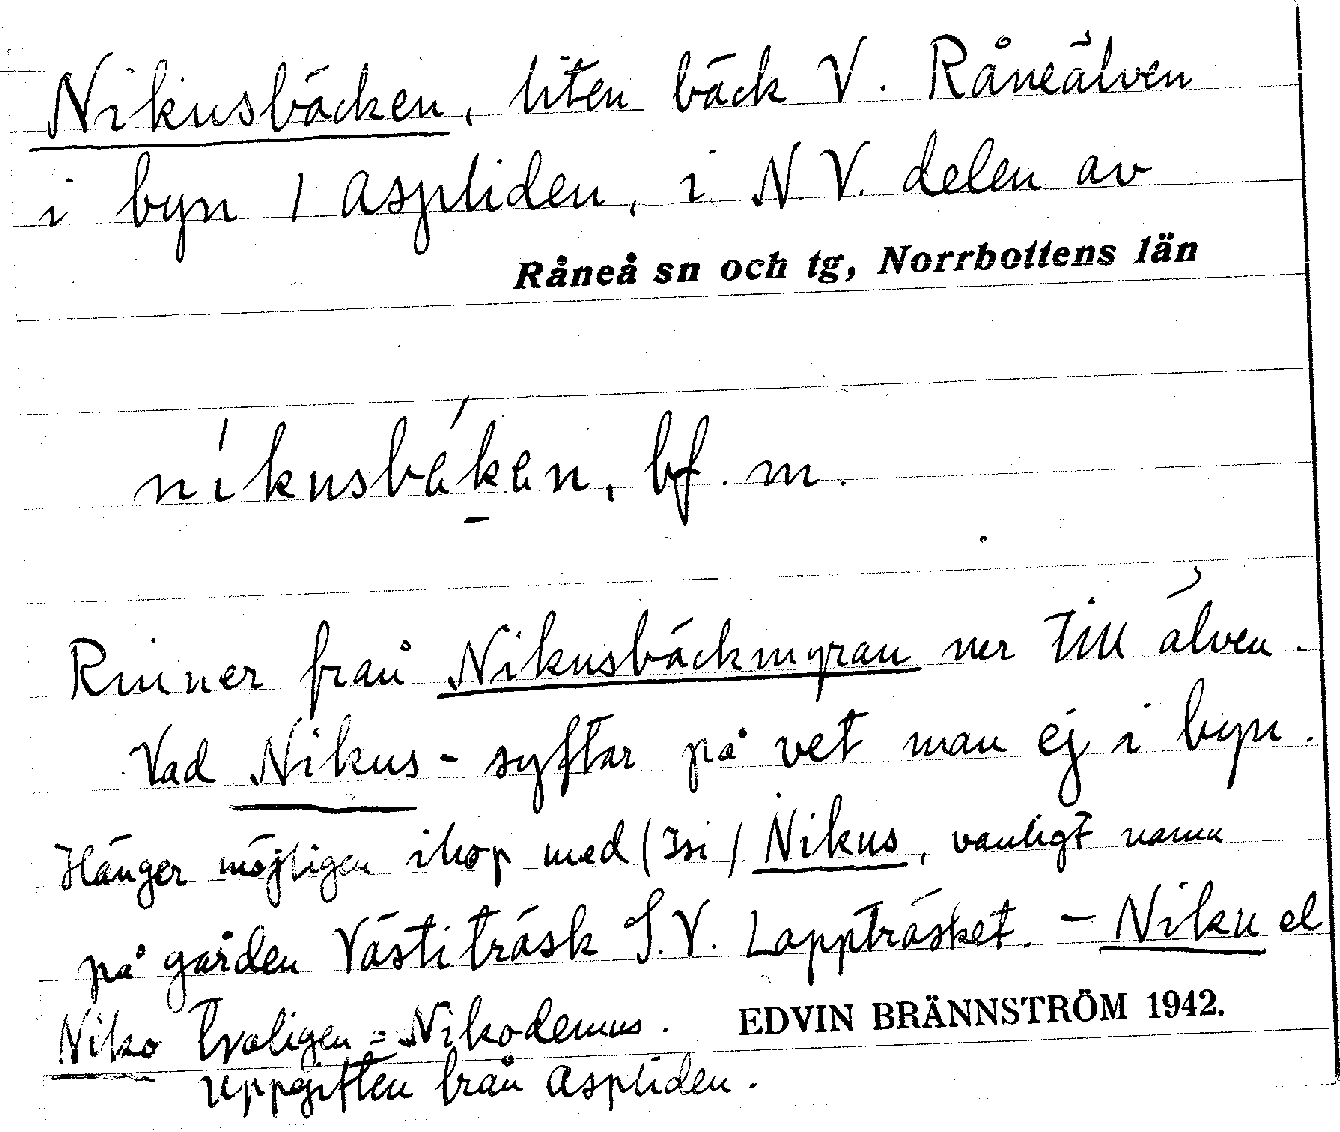 Nikusbäcken, liten bäck V. Råneälven
i byn / Aspliden, i N V. delen av
Råneå sn och tg, Norrbottens län
níkusbákan, bf. m.
Rinner från Nikusbäckmyran ner till älven.
Vad Nikus- syftar på vet man ej i byn.
Hänger möjligen ihop med (Isi) Nikus, vanligt namn
på gården Västiträsk S.V. Lappträsket. – Niku el
Niko troligen = Nikodemus.
EDVIN BRÄNNSTRÖM 1942.
Uppgiften från Aspliden.